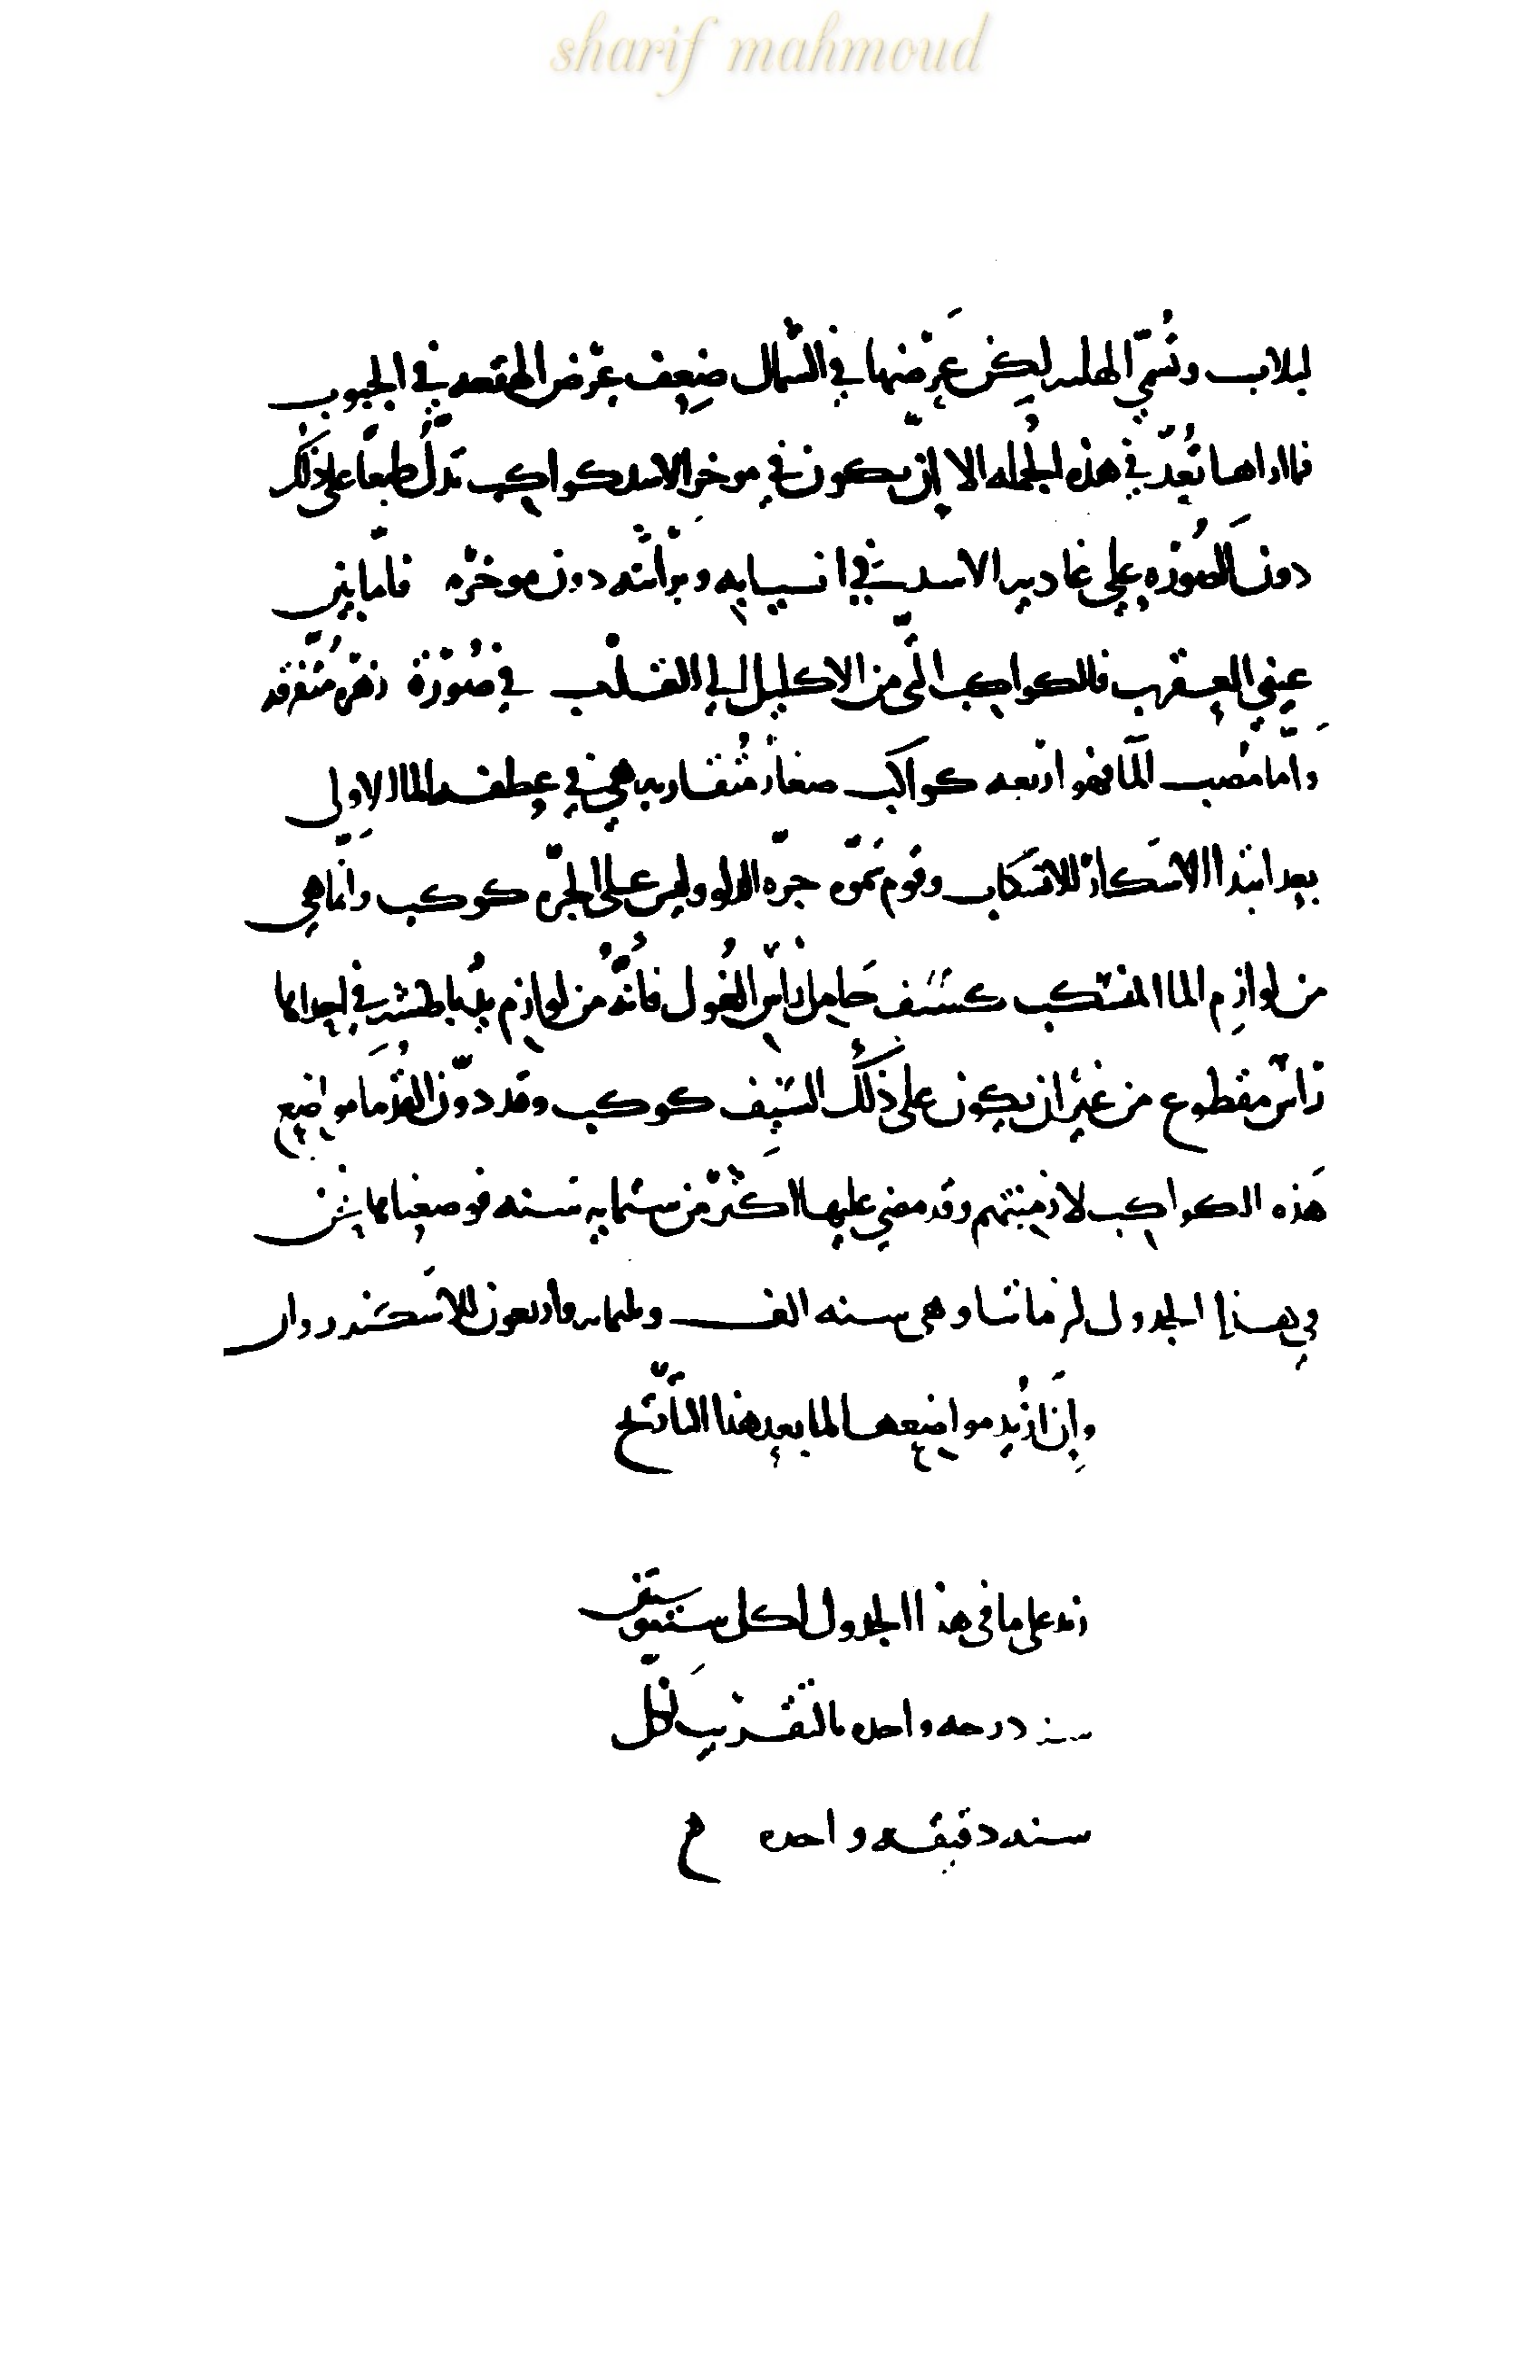 sharif mahmoud
وتسمّى الهلبه لكن عَرْضها في الشمال ضعف عرض الهقعه في الجنوب
فما اراها تُعدّ في هذه الجُمله الا ان يكون في موخر الاسد كواكب تدلّ طبعًا على ذلك
دون الصُورَه على عاديه الاسد في انيابه وبراثنه دون موخره فاما بين
عيني العقرب فالكواكب الّتي من الاكليل الى القلْب في صُورَة زهره مُتفرقه
وامّا مصب المآ فهو اربعه كواكب صغار مُتقاربه هي في عطفه الما الاولى
بعد ابتدا الانسكاب وقوم جرّه الدلو وليس على الجرّه كوكب وانّما هي
من لوازم الما المنسكب كسَيْف حَامِل رأس الغُول فانّه من لوازم يدٍ باطشه في احداهما
رأس مقطوع من غير ان يكون على ذلك السّيف كوكب وقد دوّن القُدَما مواضع
هَذه الكواكب لازمنتهم وقد مضى عليها اكثر من ستمايه سنه فوضعناها نحن
في هذا الجدول لزماننا وهي سنه الف وثلثمايه واربعون للاسكندر وان
وإن اُرْيد مواضعها لما بعد هذا التأريخ
زيد على ما في هذا الجدول لكل ستّ وستين
سنه درجه واحده بالتقريب لكلّ
سنه دقيقه واحده